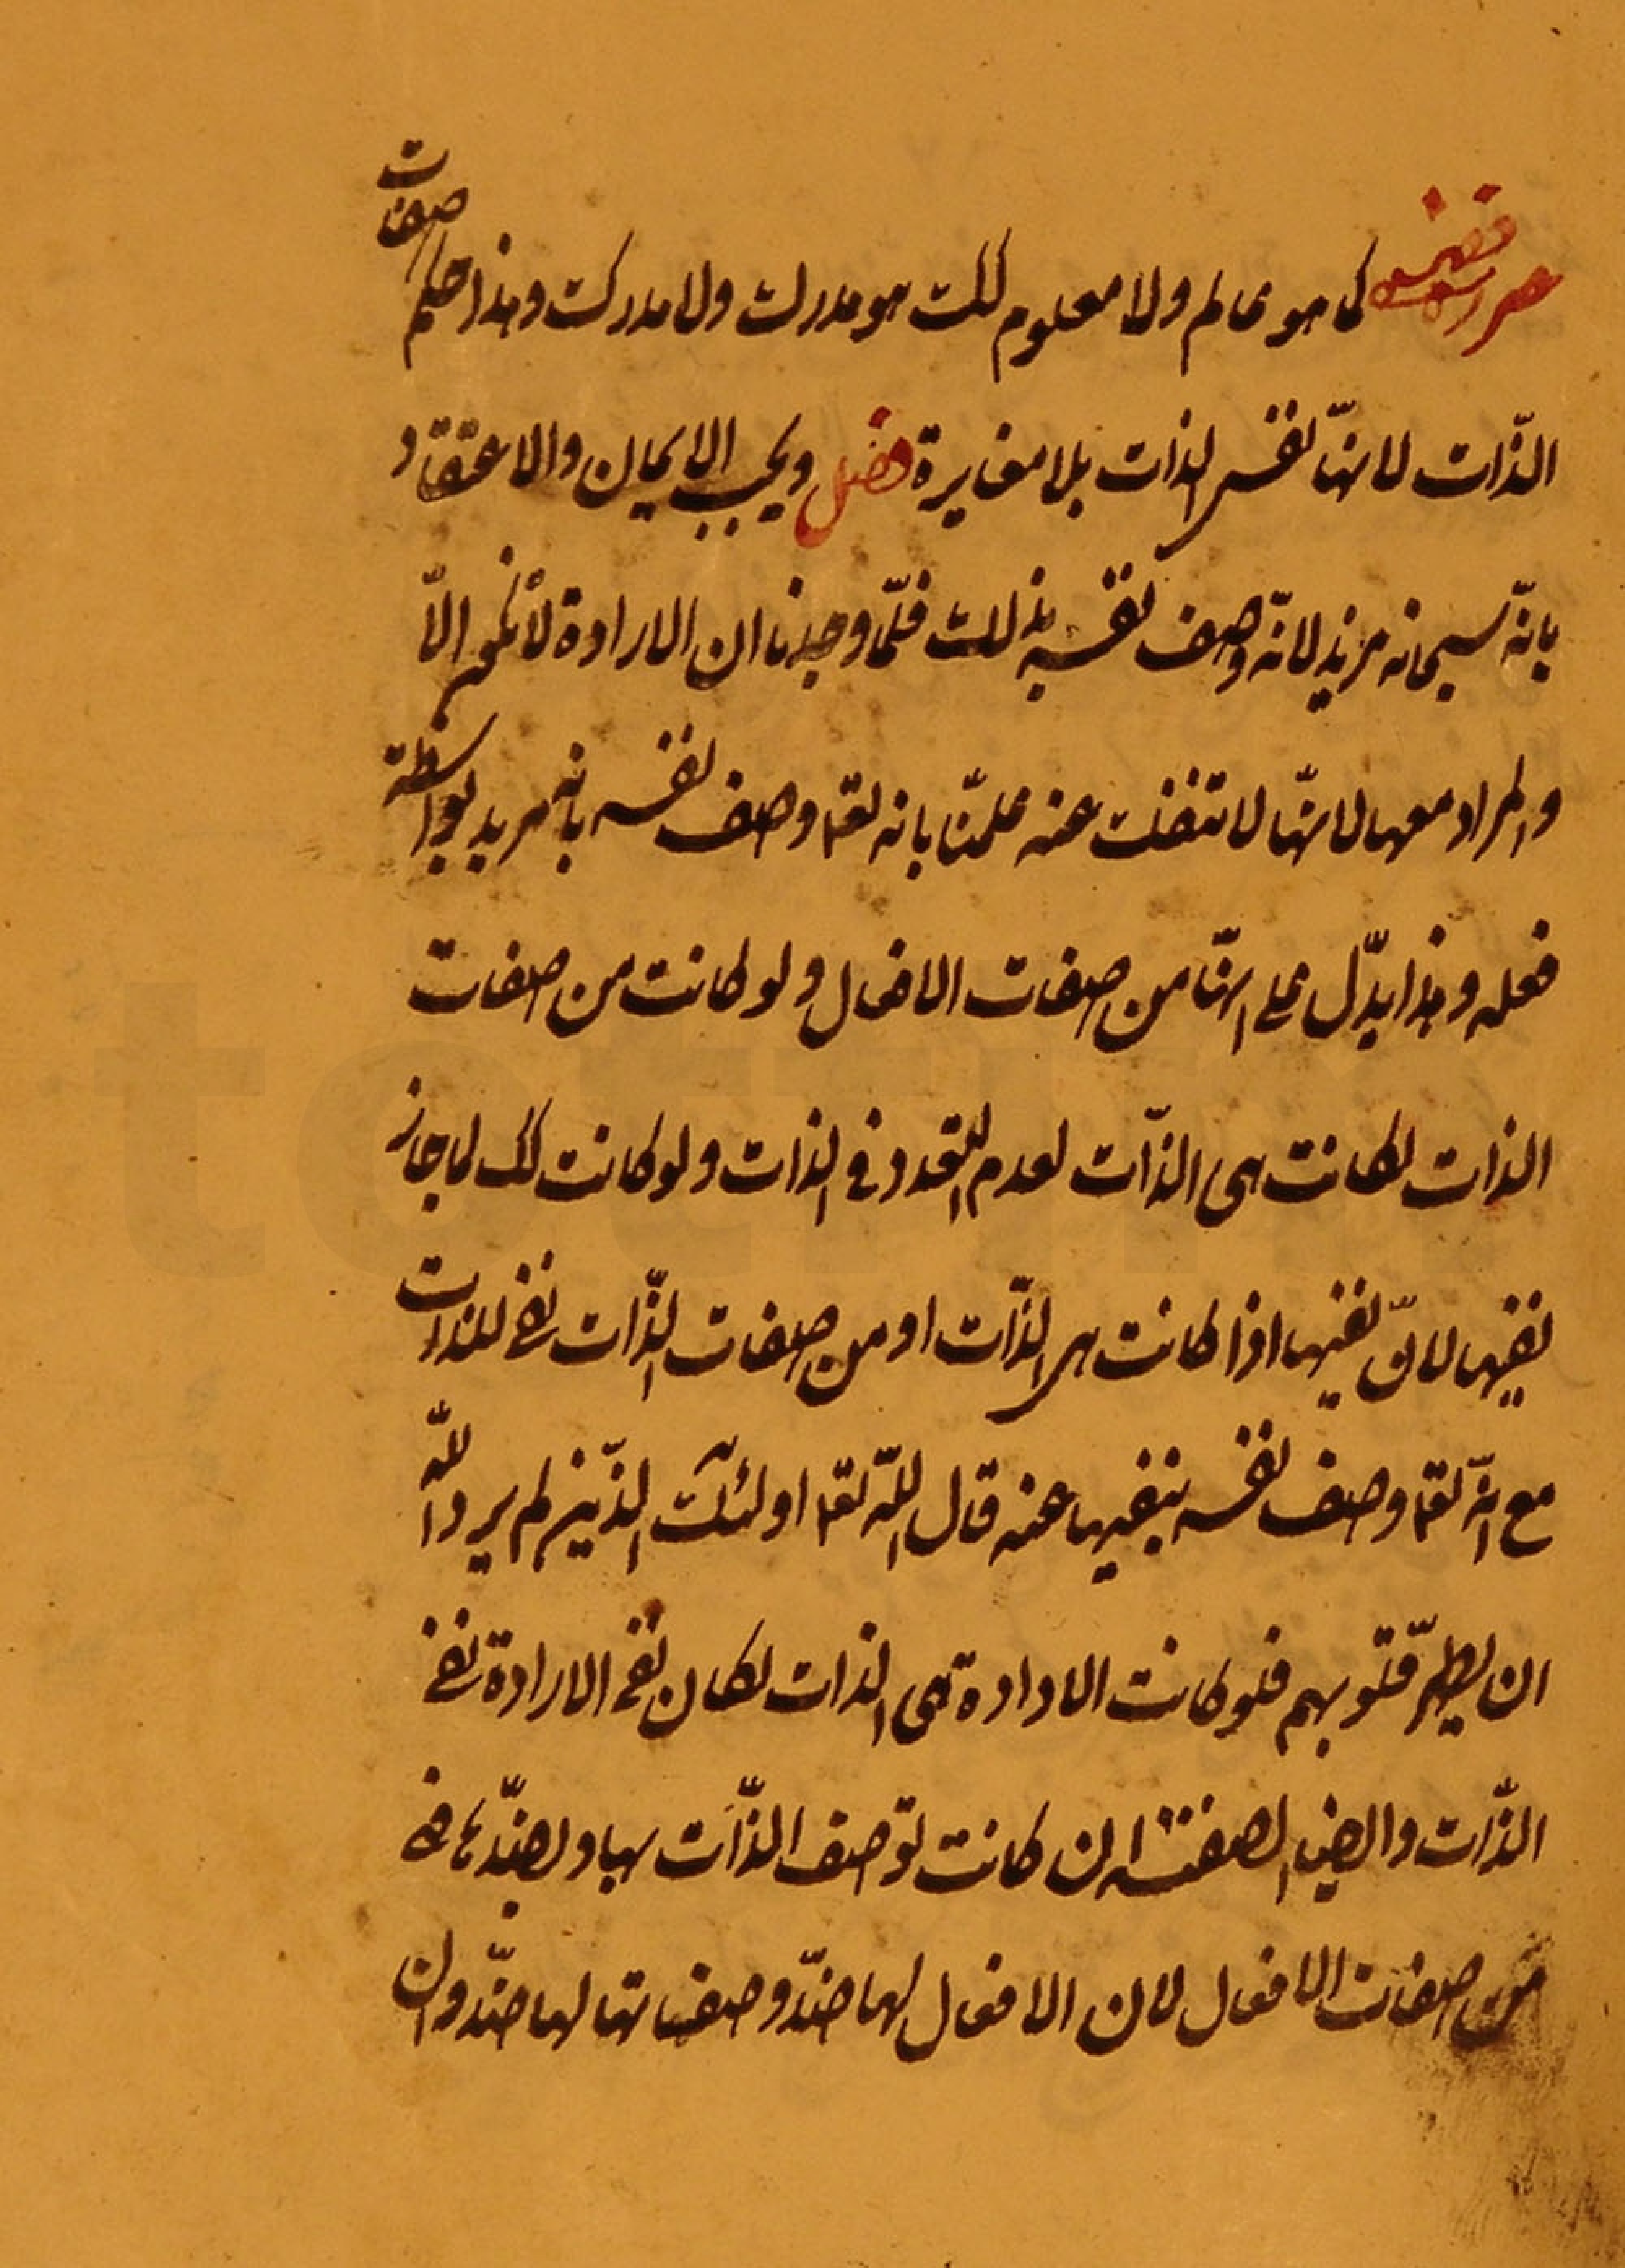 كما هو عالم ولا معلوم كك هو مدرك ولا مدرك وهذا حكم صفات
الذّات لانهّا نفس الذات بلا مغايرة فصل ويجب الايمان والاعتقاد
بانهّ سبحانه مريد لانهّ وصف نفسه بذلك فلمّا وجدنا ان الارادة لا تكون الاّ
والمراد معها لانهّا لا تنفك عنه علمنّا بانه تعٰا وصف نفسه بانه مريد بواسطة
فعله وهذا يدّل على انهّا من صفات الافعال ولو كانت من صفات
الذات لكانت هى الذّات لعدم التعدد في الذات ولو كانت كك لما جاز
نفيها لانّ نفيها اذا كانت هى الذّات او من صفات الذّات نفى للذات
مع انهّ تعٰا وصف نفسه بنفيها عنه قال اللّه تعٰا اولئك الذّين لم يرد اللّه
ان يطهرّ قلوبهم فلو كانت الادادة هى الذات لكان نفى الارادة نفى
الذّات وايضا الصفة ان كانت توصف الذّات بها وبضدّها فهى
من صفات الافعال لان الافعال لها ضدّ وصفاتها لها ضدّ وان